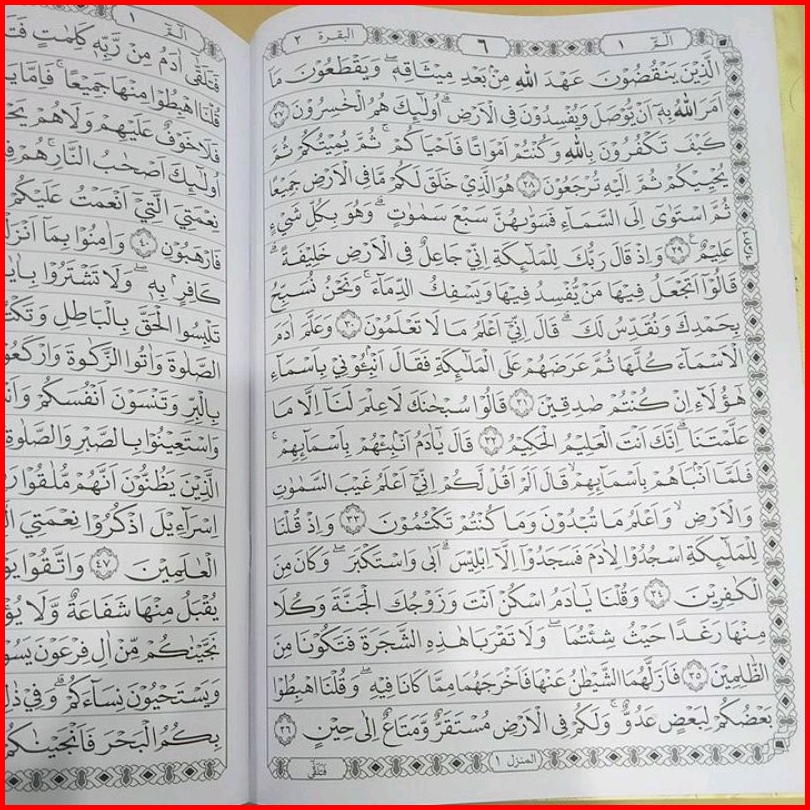 الٓمّٓ ١
٦
البقرة ٢
الَّذِيْنَ يَنْقُضُوْنَ عَهْدَ اللهِ مِنْۢ بَعْدِ مِيْثَاقِهٖ ۖ وَيَقْطَعُوْنَ مَآ
اَمَرَ اللهُ بِهٖٓ اَنْ يُّوْصَلَ وَيُفْسِدُوْنَ فِى الْاَرْضِ ۗ اُولٰٓئِكَ هُمُ الْخٰسِرُوْنَ ٢٧
كَيْفَ تَكْفُرُوْنَ بِاللهِ وَكُنْتُمْ اَمْوَاتًا فَاَحْيَاكُمْ ۚ ثُمَّ يُمِيْتُكُمْ ثُمَّ
يُحْيِيْكُمْ ثُمَّ اِلَيْهِ تُرْجَعُوْنَ ٢٨ هُوَ الَّذِيْ خَلَقَ لَكُمْ مَّا فِى الْاَرْضِ جَمِيْعًا
ثُمَّ اسْتَوٰٓى اِلَى السَّمَآءِ فَسَوّٰىهُنَّ سَبْعَ سَمٰوٰتٍ ۗ وَهُوَ بِكُلِّ شَيْءٍ
عَلِيْمٌ ٢٩ وَاِذْ قَالَ رَبُّكَ لِلْمَلٰٓئِكَةِ اِنِّيْ جَاعِلٌ فِى الْاَرْضِ خَلِيْفَةً ۗ
قَالُوْٓا اَتَجْعَلُ فِيْهَا مَنْ يُّفْسِدُ فِيْهَا وَيَسْفِكُ الدِّمَآءَ ۚ وَنَحْنُ نُسَبِّحُ
بِحَمْدِكَ وَنُقَدِّسُ لَكَ ۗ قَالَ اِنِّيْٓ اَعْلَمُ مَا لَا تَعْلَمُوْنَ ٣٠ وَعَلَّمَ اٰدَمَ
الْاَسْمَآءَ كُلَّهَا ثُمَّ عَرَضَهُمْ عَلَى الْمَلٰٓئِكَةِ فَقَالَ اَنْۢبِـُٔوْنِيْ بِاَسْمَآءِ
هٰٓؤُلَآءِ اِنْ كُنْتُمْ صٰدِقِيْنَ ٣١ قَالُوْا سُبْحٰنَكَ لَا عِلْمَ لَنَآ اِلَّا مَا
عَلَّمْتَنَا ۗ اِنَّكَ اَنْتَ الْعَلِيْمُ الْحَكِيْمُ ٣٢ قَالَ يٰٓاٰدَمُ اَنْۢبِئْهُمْ بِاَسْمَآئِهِمْ ۚ
فَلَمَّآ اَنْۢبَاَهُمْ بِاَسْمَآئِهِمْ ۙ قَالَ اَلَمْ اَقُلْ لَّكُمْ اِنِّيْٓ اَعْلَمُ غَيْبَ السَّمٰوٰتِ
وَالْاَرْضِ ۙ وَاَعْلَمُ مَا تُبْدُوْنَ وَمَا كُنْتُمْ تَكْتُمُوْنَ ٣٣ وَاِذْ قُلْنَا
لِلْمَلٰٓئِكَةِ اسْجُدُوْا لِاٰدَمَ فَسَجَدُوْٓا اِلَّآ اِبْلِيْسَ ۗ اَبٰى وَاسْتَكْبَرَ ۖ وَكَانَ مِنَ
الْكٰفِرِيْنَ ٣٤ وَقُلْنَا يٰٓاٰدَمُ اسْكُنْ اَنْتَ وَزَوْجُكَ الْجَنَّةَ وَكُلَا
مِنْهَا رَغَدًا حَيْثُ شِئْتُمَا ۖ وَلَا تَقْرَبَا هٰذِهِ الشَّجَرَةَ فَتَكُوْنَا مِنَ
الظّٰلِمِيْنَ ٣٥ فَاَزَلَّهُمَا الشَّيْطٰنُ عَنْهَا فَاَخْرَجَهُمَا مِمَّا كَانَا فِيْهِ ۖ وَقُلْنَا اهْبِطُوْا
بَعْضُكُمْ لِبَعْضٍ عَدُوٌّ ۚ وَلَكُمْ فِى الْاَرْضِ مُسْتَقَرٌّ وَّمَتَاعٌ اِلٰى حِيْنٍ ٣٦
المنزل ١
فَتَلَقّٰى
الٓمّٓ ١
فَتَلَقّٰٓى اٰدَمُ مِنْ رَّبِّهٖ كَلِمٰتٍ
قُلْنَا اهْبِطُوْا مِنْهَا جَمِيْعًا ۚ فَاِمَّا
فَلَا خَوْفٌ عَلَيْهِمْ وَلَا هُمْ
اُولٰٓئِكَ اَصْحٰبُ النَّارِ ۚ هُمْ
نِعْمَتِيَ الَّتِيْٓ اَنْعَمْتُ عَلَيْكُمْ
فَارْهَبُوْنِ ٤٠ وَاٰمِنُوْا بِمَآ
كَافِرٍۢ بِهٖ ۖ وَلَا تَشْتَرُوْا
تَلْبِسُوا الْحَقَّ بِالْبَاطِلِ
الصَّلٰوةَ وَاٰتُوا الزَّكٰوةَ
بِالْبِرِّ وَتَنْسَوْنَ اَنْفُسَكُمْ
وَاسْتَعِيْنُوْا بِالصَّبْرِ وَالصَّلٰوةِ
الَّذِيْنَ يَظُنُّوْنَ اَنَّهُمْ مُّلٰقُوْا
اِسْرَآءِيْلَ اذْكُرُوْا نِعْمَتِيَ
الْعٰلَمِيْنَ ٤٧ وَاتَّقُوْا
يُقْبَلُ مِنْهَا شَفَاعَةٌ وَّلَا
نَجَّيْنٰكُمْ مِّنْ اٰلِ فِرْعَوْنَ
وَيَسْتَحْيُوْنَ نِسَآءَكُمْ ۗ وَفِيْ
بِكُمُ الْبَحْرَ فَاَنْجَيْنٰكُمْ